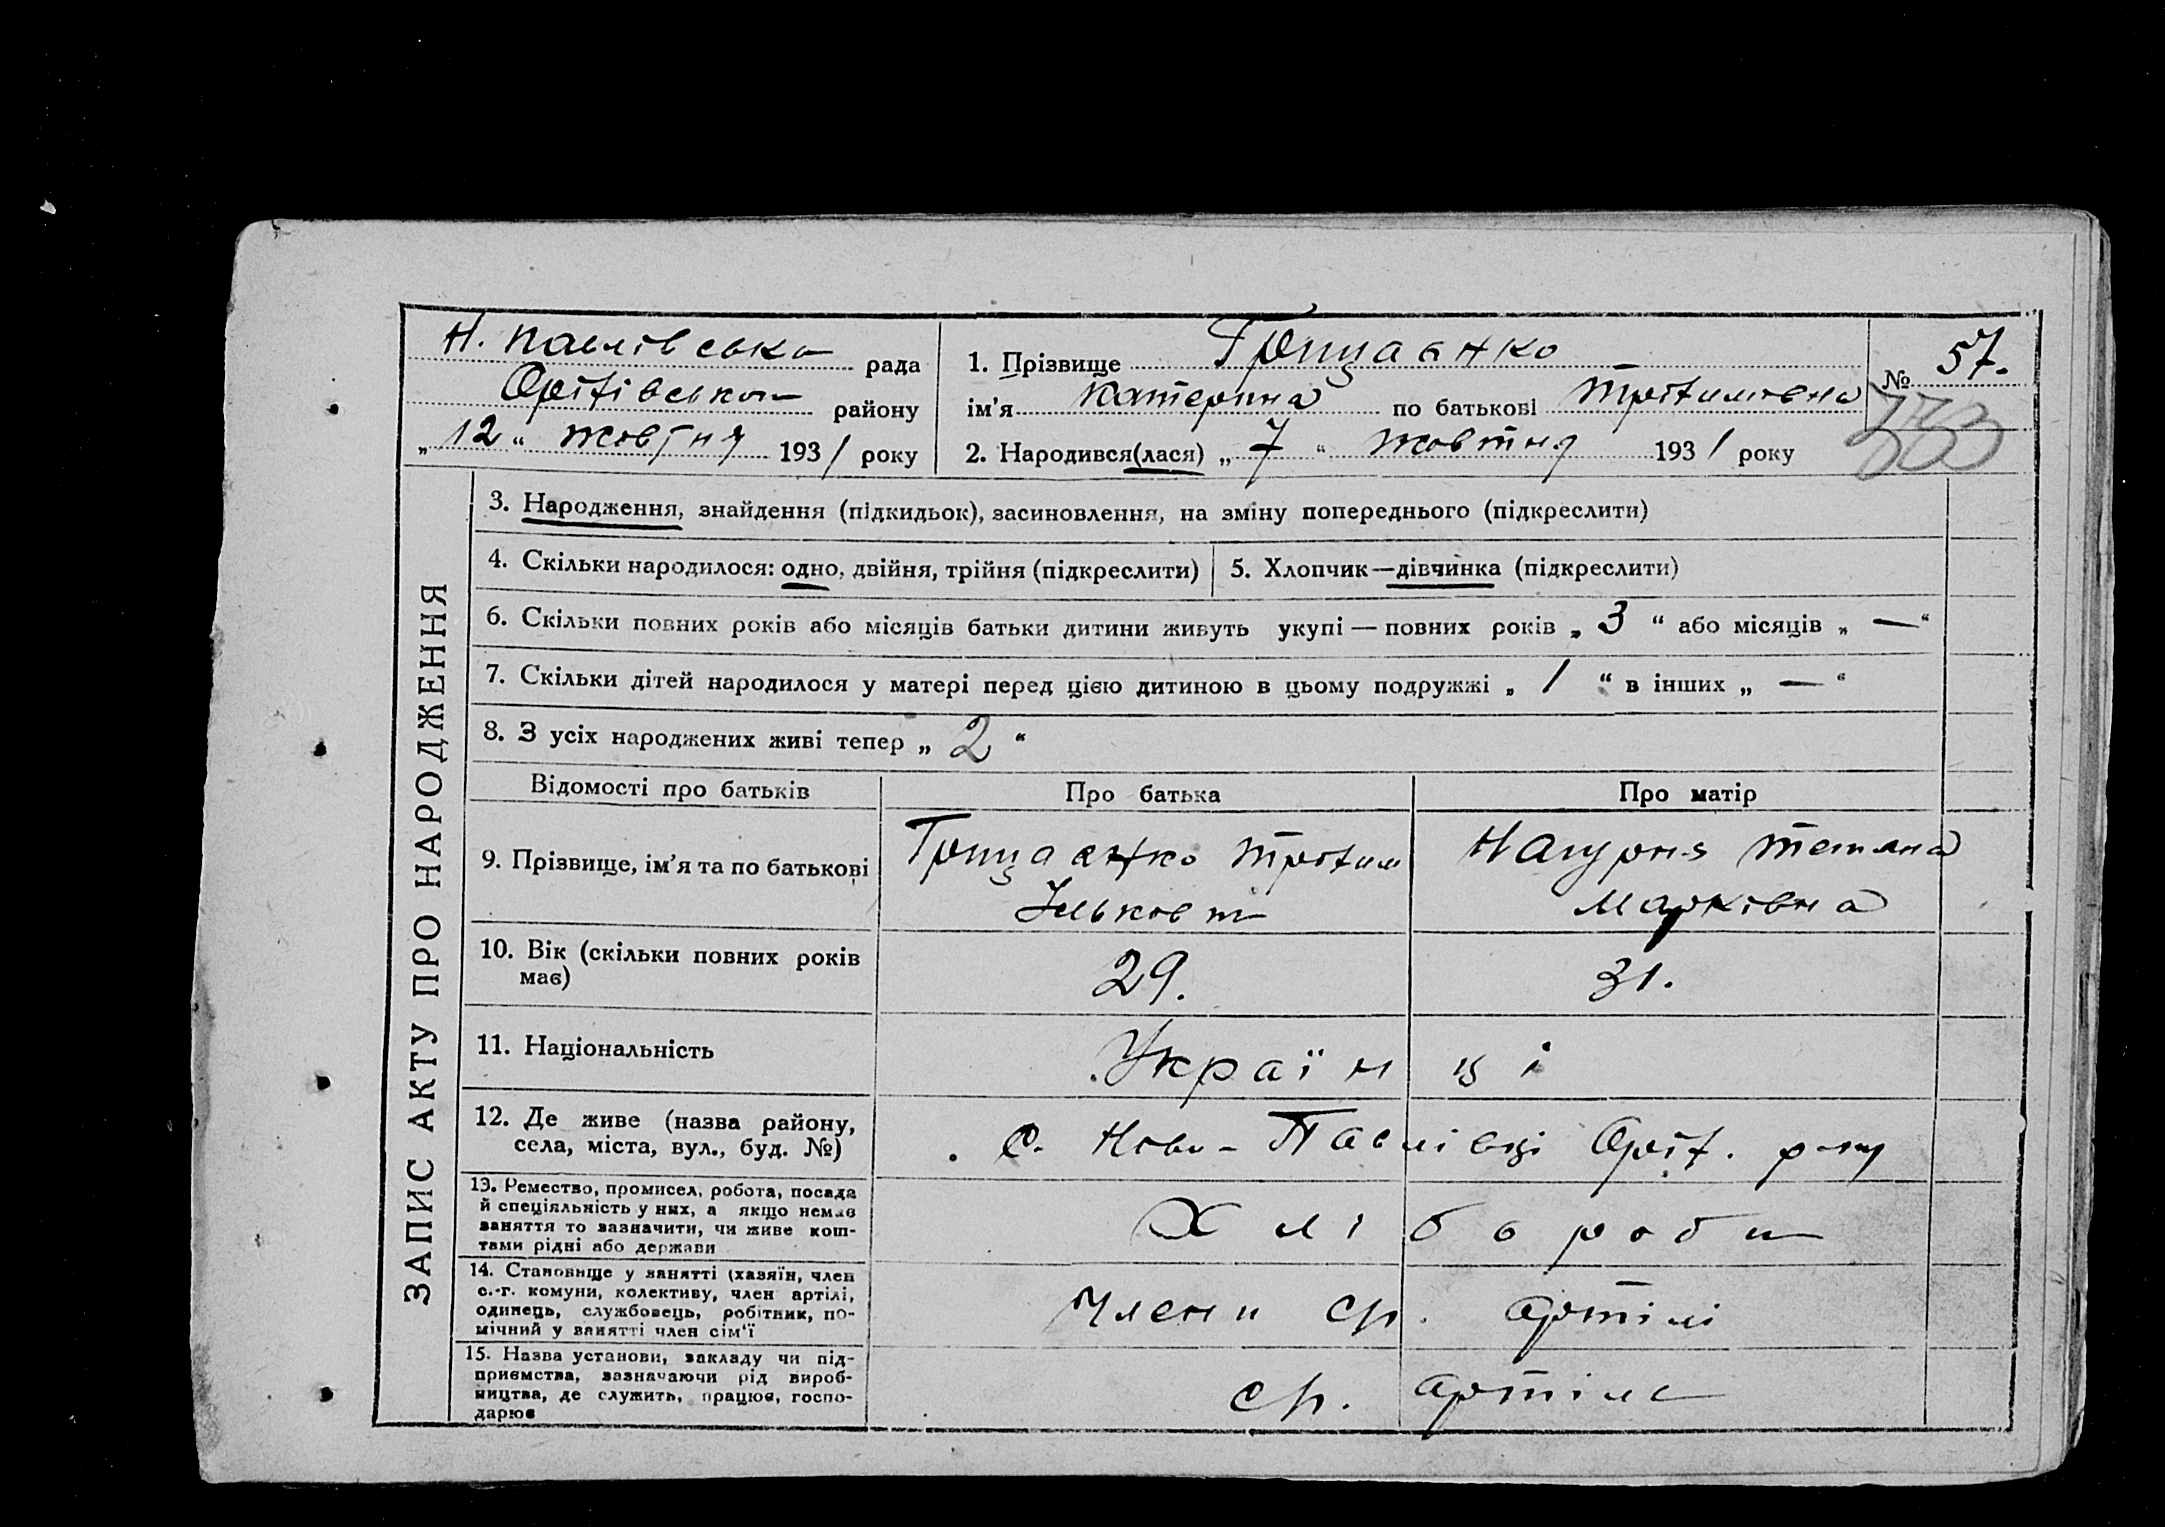 Н. Павлівська рада
Оріхівського району
„12“ жовтня 1931 року
1. Прізвище Грицаєнко
ім’я Катерина по батькові Трохимовна
2. Народився(лася) „7“ жовтня 1931 року
№ 57.
333
ЗАПИС АКТУ ПРО НАРОДЖЕННЯ
3. Народження, знайдення (підкидьок), засиновлення, на зміну попереднього (підкреслити)
4. Скільки народилося: одно, двійня, трійня (підкреслити)
5. Хлопчик—дівчинка (підкреслити)
6. Скільки повних років або місяців батьки дитини живуть укупі — повних років „3“ або місяців „—“
7. Скільки дітей народилося у матері перед цією дитиною в цьому подружжі „1“ в інших „—“
8. З усіх народжених живі тепер „2“
Відомості про батьків Про батька Про матір
9. Прізвище, ім’я та по батькові
Грицаєнко Трохим
Ількович
Тетяна
Марківна
10. Вік (скільки повних років
має)
29. 31.
11. Національність Українці
12. Де живе (назва району,
села, міста, вул., буд. №)
с. Ново-Павлівці Оріх. р-ну
13. Ремество, промисел, робота, посада
й спеціяльність у них, а якщо немає
заняття то зазначити, чи живе кош-
тами рідні або держави
Хлібороби
14. Становище у занятті (хазяїн, член
с.-г. комуни, колективу, член артілі,
одинець, службовець, робітник, по-
мічний у занятті член сім’ї
Члени ср. артілі
15. Назва установи, закладу чи під-
приємства, зазначаючи рід вироб-
ництва, де служить, працює, госпо-
дарює
ср. артіль